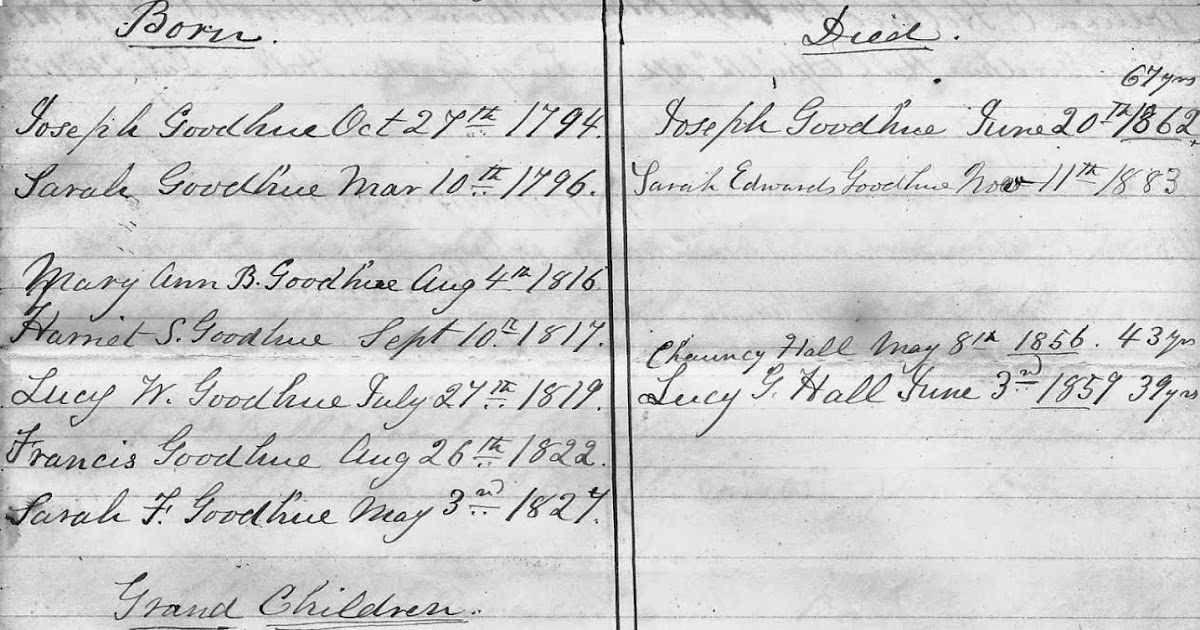 Born.
Joseph Goodhue Oct 27th 1794.
Sarah Goodhue Mar 10th 1796.
Mary Ann B. Goodhue Aug 4th 1816
Harriet S. Goodhue Sept 10th 1817.
Lucy W. Goodhue July 27th 1819.
Francis Goodhue Aug 26th 1822.
Sarah F. Goodhue May 3rd 1827.
Grand Children.
Died.
67 yrs
Joseph Goodhue June 20th 1862
Sarah Edwards Goodhue Nov 11th 1883
Chauncy Hall May 8th 1856. 43 yrs
Lucy G. Hall June 3rd 1859 39 yrs